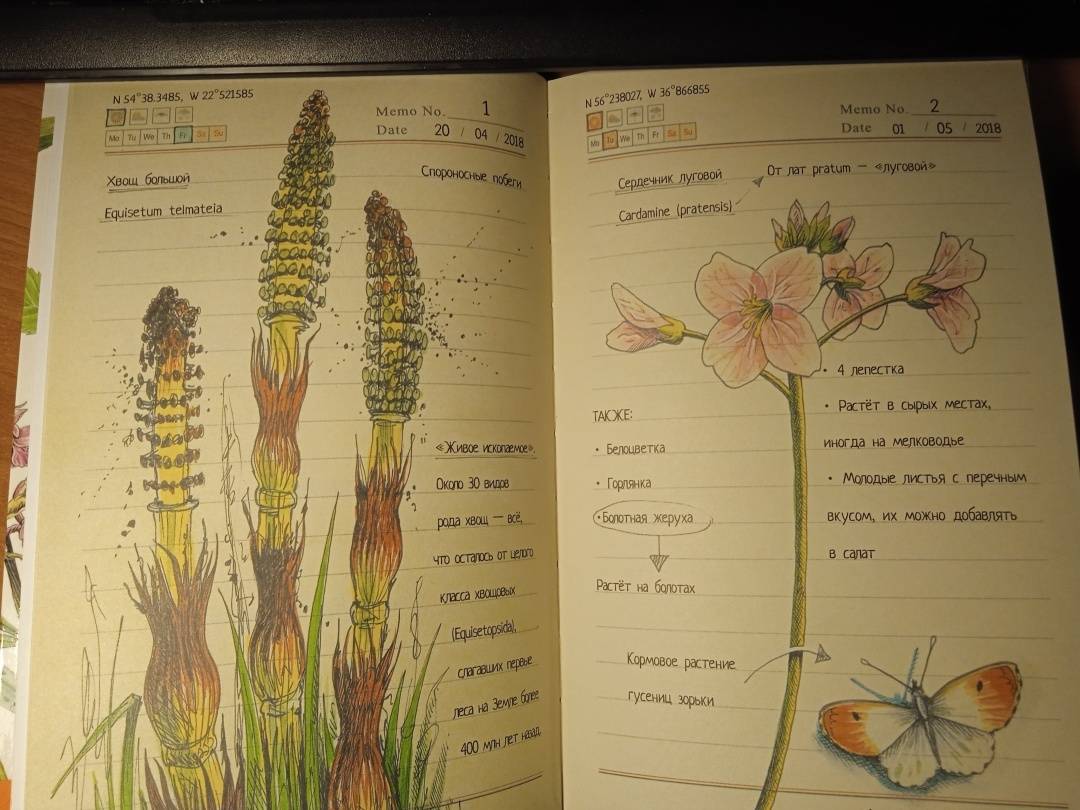 N 54°38.3485, W 22°521585
Memo No. 1
Mo Tu We Th Fr Sa Su
Date 20 / 04 / 2018
Хвощ большой
Спороносные побеги
Equisetum telmateia
«Живое ископаемое».
Около 30 видов
рода хвощ — всё,
что осталось от целого
класса хвощовых
(Equisetopsida),
слагавших первые
леса на Земле более
400 млн лет назад.
N 56°238027, W 36°866855
Memo No. 2
Mo Tu We Th Fr Sa Su
Date 01 / 05 / 2018
Сердечник луговой
От лат pratum — «луговой»
Cardamine (pratensis)
• 4 лепестка
• Растёт в сырых местах,
иногда на мелководье
• Молодые листья с перечным
вкусом, их можно добавлять
в салат
ТАКЖЕ:
• Белоцветка
• Горлянка
• Болотная жеруха
Растёт на болотах
Кормовое растение
гусениц зорьки